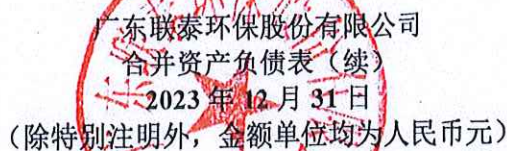 广东联泰环保股份有限公司
合并资产负债表（续）
2023 年 12 月 31 日
（除特别注明外，金额单位均为人民币元）